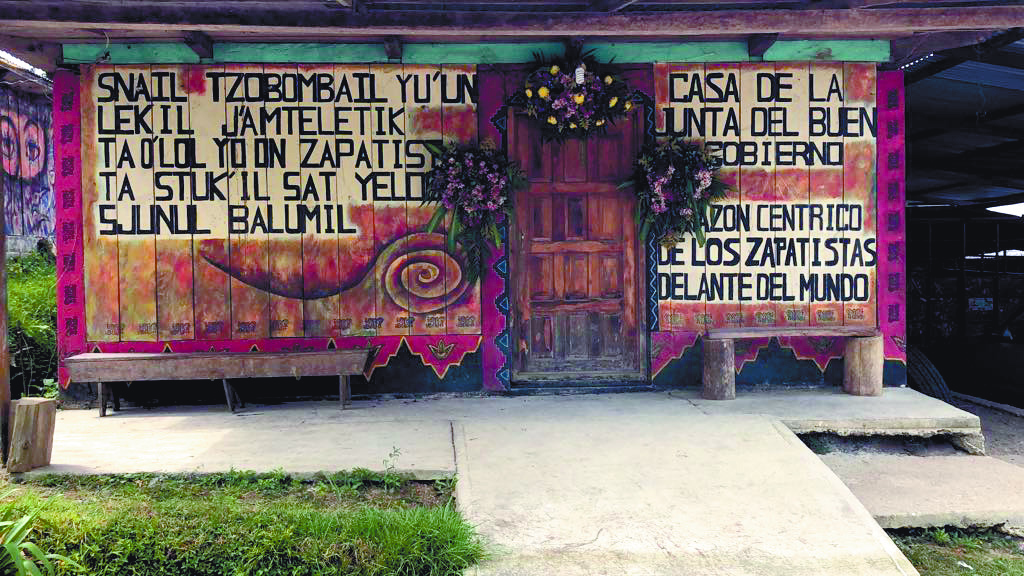 SNAIL TZOBOMBAIL YU'UN
LEK'IL J'AMTELETIK
TA O'LOL YO'ON ZAPATIST
TA STUK'IL SAT YELO
SJUNUL BALUMIL
CASA DE LA
JUNTA DEL BUEN
GOBIERNO
AZON CENTRICO
DE LOS ZAPATISTAS
DELANTE DEL MUNDO